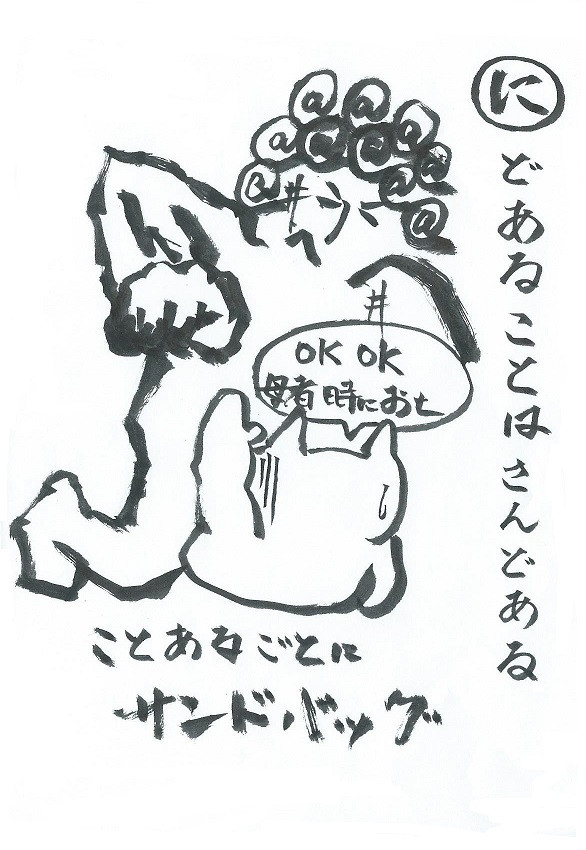 に
どあることはさんどある
OK OK
母者時におせ
ことあるごとに
サンドバッグ